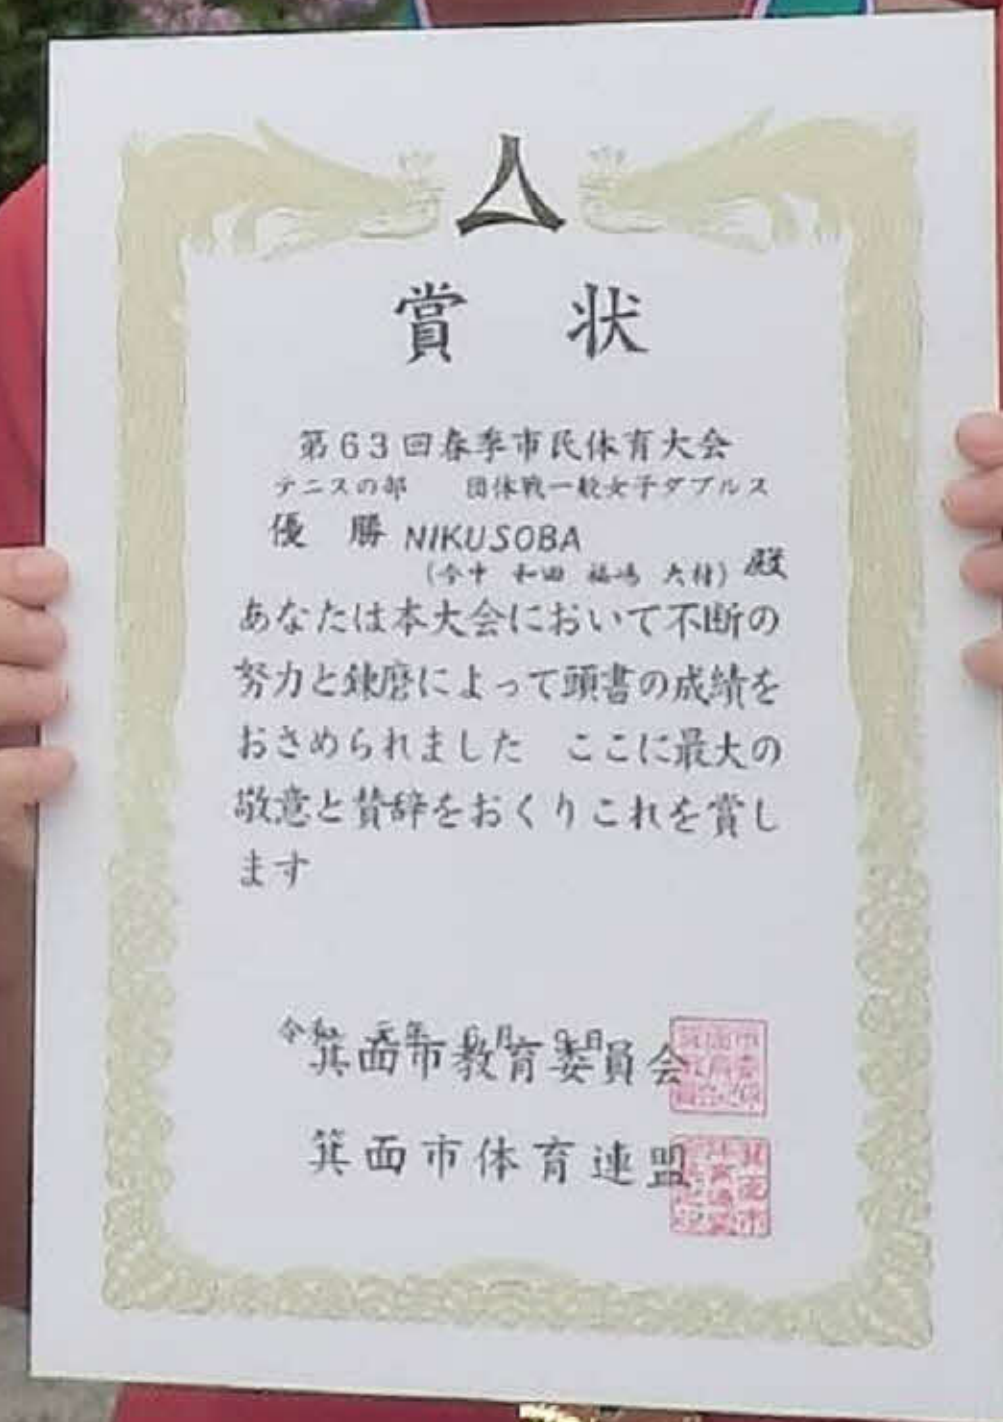 賞状
第63回春季市民体育大会
テニスの部 団体戦一般女子ダブルス
優勝 NIKUSOBA
(今中 和田 福嶋 大村) 殿
あなたは本大会において不断の
努力と錬磨によって頭書の成績を
おさめられました ここに最大の
敬意と賛辞をおくりこれを賞し
ます
令和 元年 6月 9日
箕面市教育委員会
箕面市体育連盟